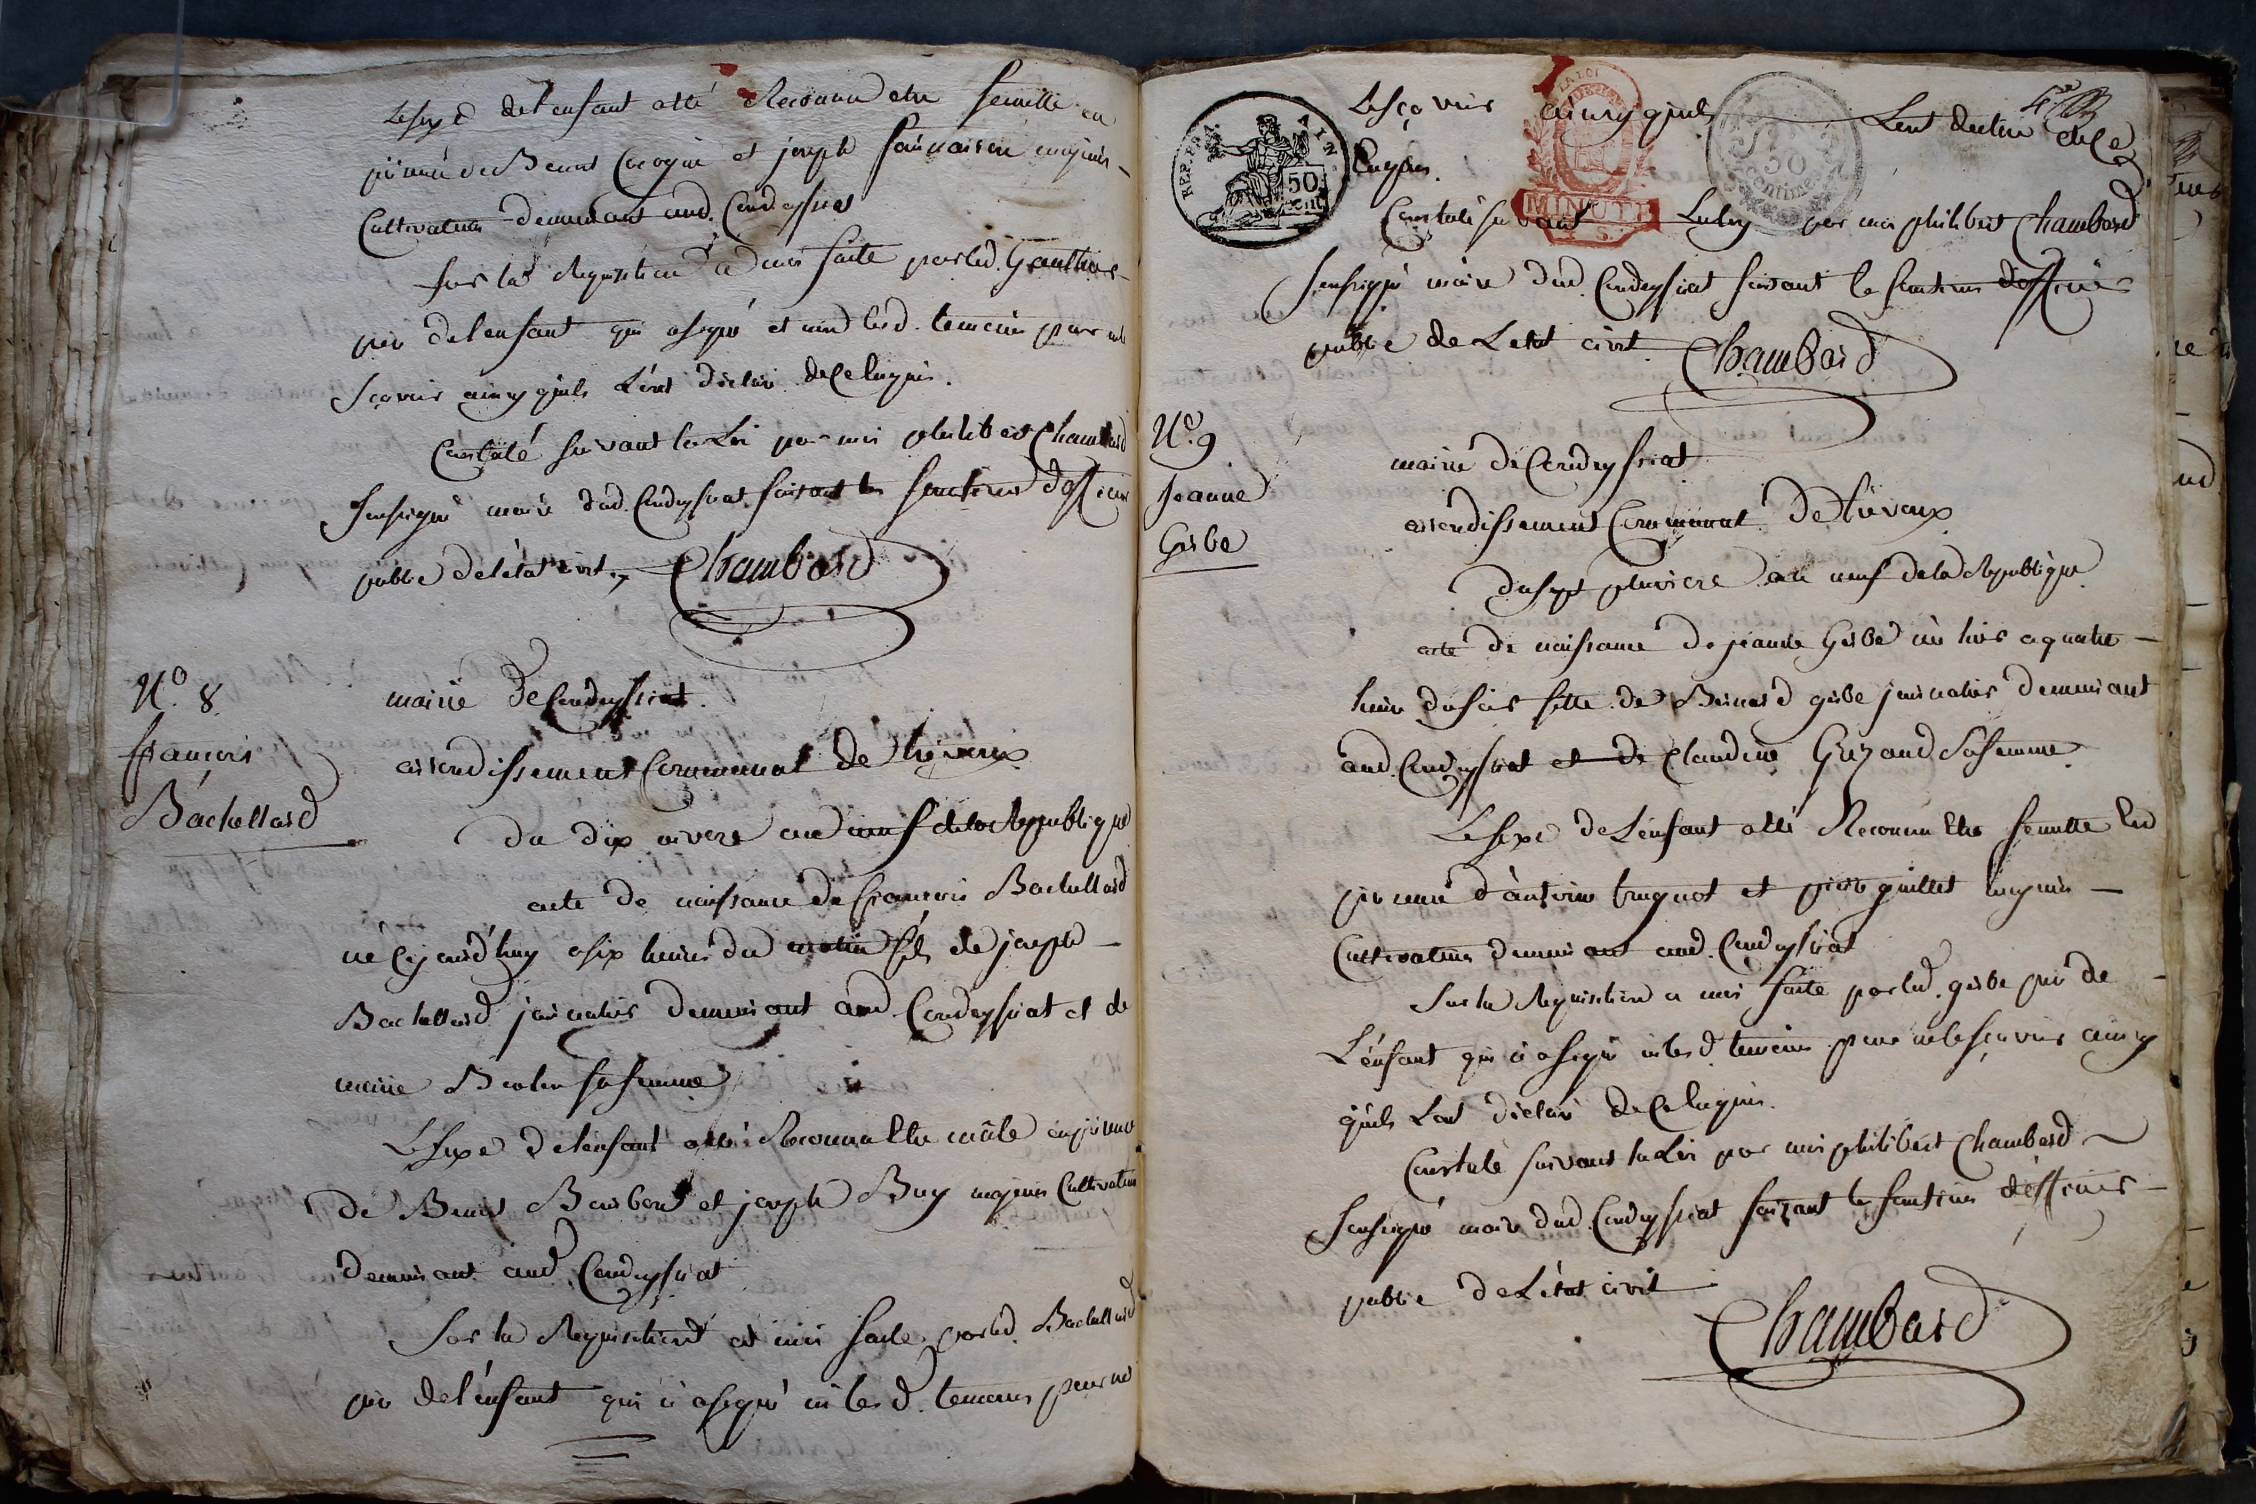 Le sexe de l'enfant a été Reconnu etre femelle en
présence de Benoit et joseph majeurs
Cultivateurs demeurant aud. Condeyssiat
sur la Requisition a moi faite par led. Gauthier
pere de l'enfant qui a signé et non lesd. temoins pour ne
sçavoir ainsy quils l'ont déclaré de ce Enquis.
Constaté suivant la Loi par moi philibert Chambard
soussigné maire dud. Condeyssiat faisant les fonctions d'officier
public de l'état civil. Chambard
No. 8.
françois
Bachellard
mairie de Condeyssiat.
arrondissement Communal de trevoux
du dix nivose an neuf de la Republique
acte de naissance de françois Bachellard
né Cejourd'huy a six heures du matin fils de joseph
Bachellard journalier demeurant aud Condeyssiat et de
marie sa femme
Le Sexe de lenfant a été Reconnu Etre mâle en présence
de Benoit Barbent et joseph Buy majeurs Cultivateurs
demeurant aud. Condeyssiat
Sur la Requisition a moi faite par led. Bachellard
pere de l'enfant qui a signé et non lesd. temoins pour ne
Le sçavoir ainsy quils Lont declaré de Ce
Enquis.
REP. FRA. AIN
50 cent
LA LOI
MINUTE
50
centimes
Constaté suivant La loy par moi philibert Chambard
soussigné maire dud. Condeyssiat faisant les fonctions dofficier
public de Letat civil. Chambard
No. 9
Jeanne
Gerbe
mairie de Condeyssiat
arrondissement Communal De trévoux
du sept pluviose an neuf de la Republique
acte de naissance de jeanne Gerbe née hier a quatre
heure du soir fille de Bernard gerbe journalier demeurant
aud. Condeyssiat et de Claudine Guzand sa femme.
Le sexe de L'enfant a été Reconnu Etre femelle En
présence d'antoine truguet et pierre guillet majeurs
Cultivateurs demeurant aud. Condeyssiat
Sur la Requisition a moi faite par led. gerbe pere de
L'énfant qui a signé et non lesd temoins pour ne le sçavoir ainsy
quils Lont déclaré de Ce Enquis.
Constaté suivant la Loi par moi philibert Chambard
soussigné maire dud. Condeyssiat faizant les fonctions d'officier
public de L'état civil
Chambard